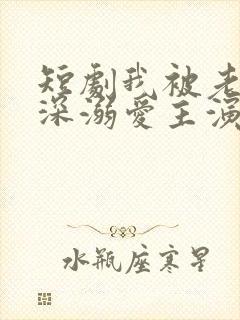 短劇我被老
深溺愛主演
水瓶座寒星